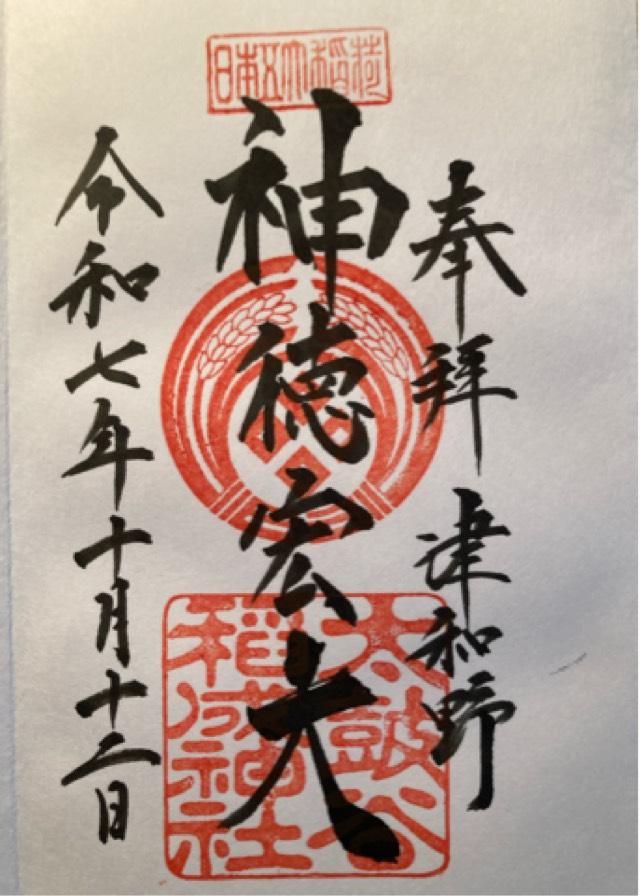 奉拝 津和野
日本五大稲荷
神徳宏大
太鼓谷
稲成神社
令和七年十月十二日